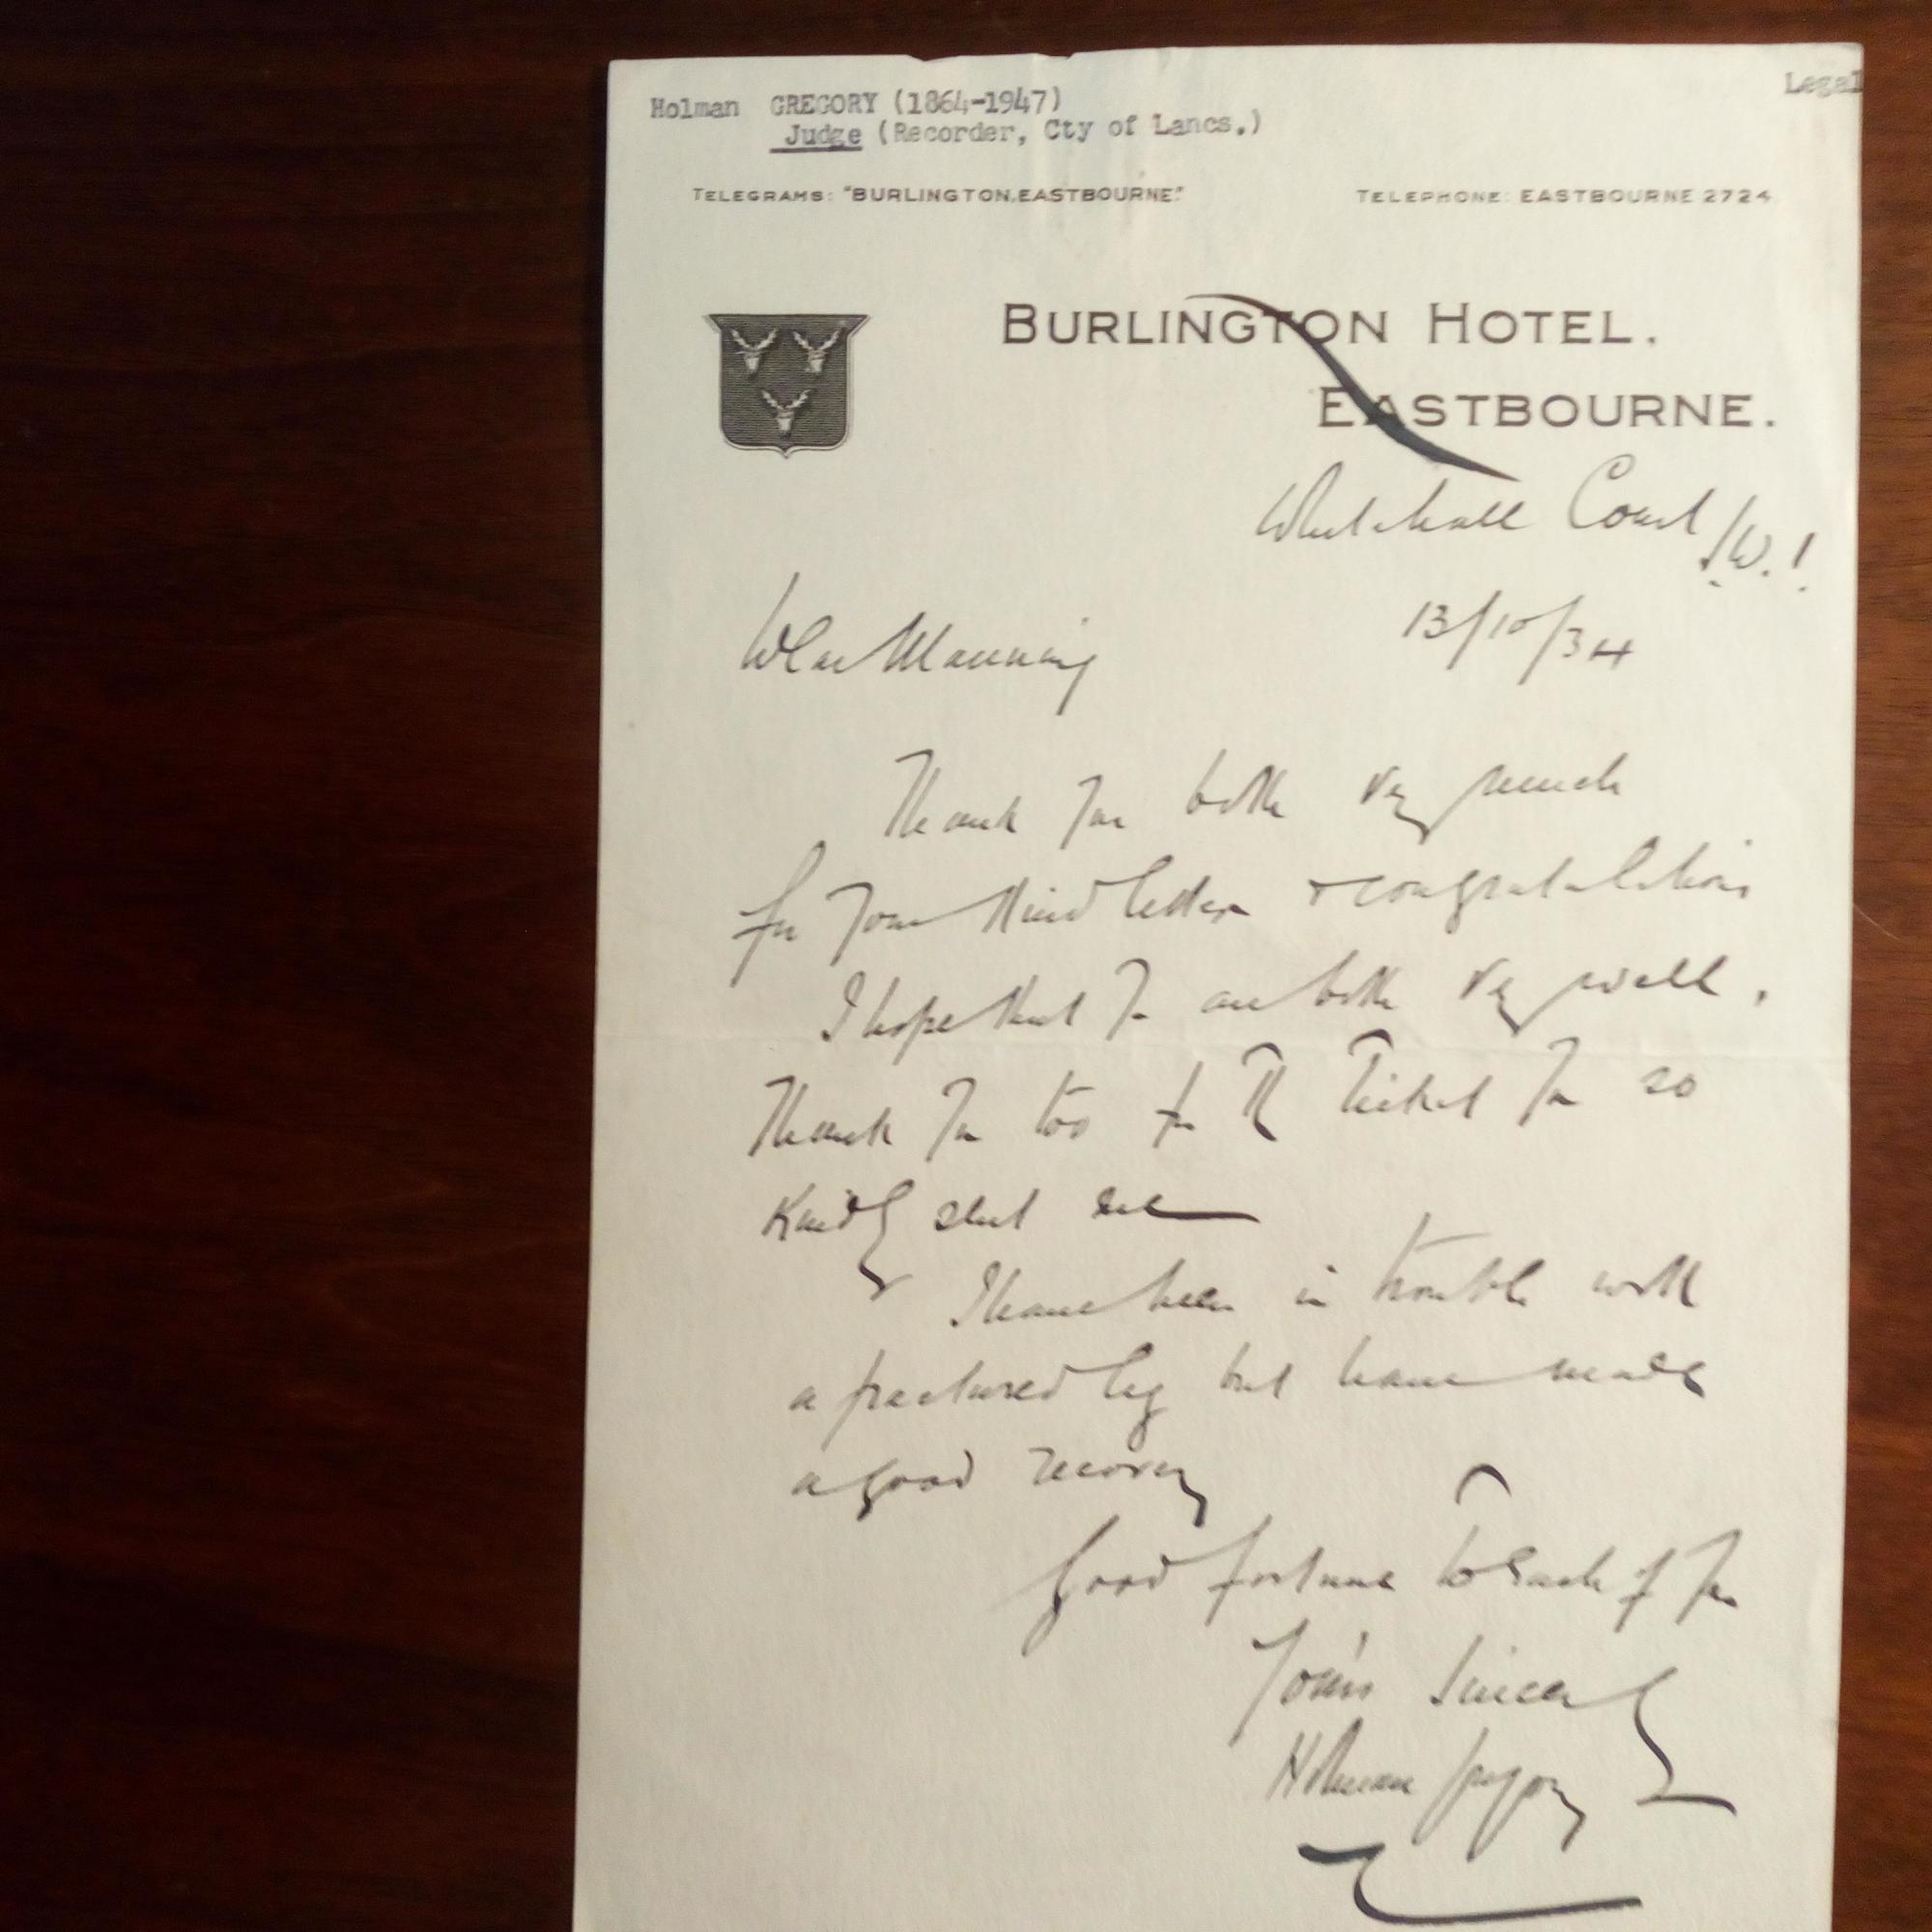 Legal
Holman GREGORY (1864-1947)
Judge (Recorder, Cty of Lancs.)
TELEGRAMS: "BURLINGTON, EASTBOURNE."
TELEPHONE: EASTBOURNE 2724
BURLINGTON HOTEL.
EASTBOURNE.
Whitehall Court
S.W.1
13/10/34
Dear Manning
Thank you both very much
for your kind letter & congratulations
I hope that you are both very well.
Thank you too for the ticket you so
kindly sent me
I have been in trouble with
a fractured leg but have made
a good recovery
Good fortune to each of you
Yours sincerely
Holman Gregory